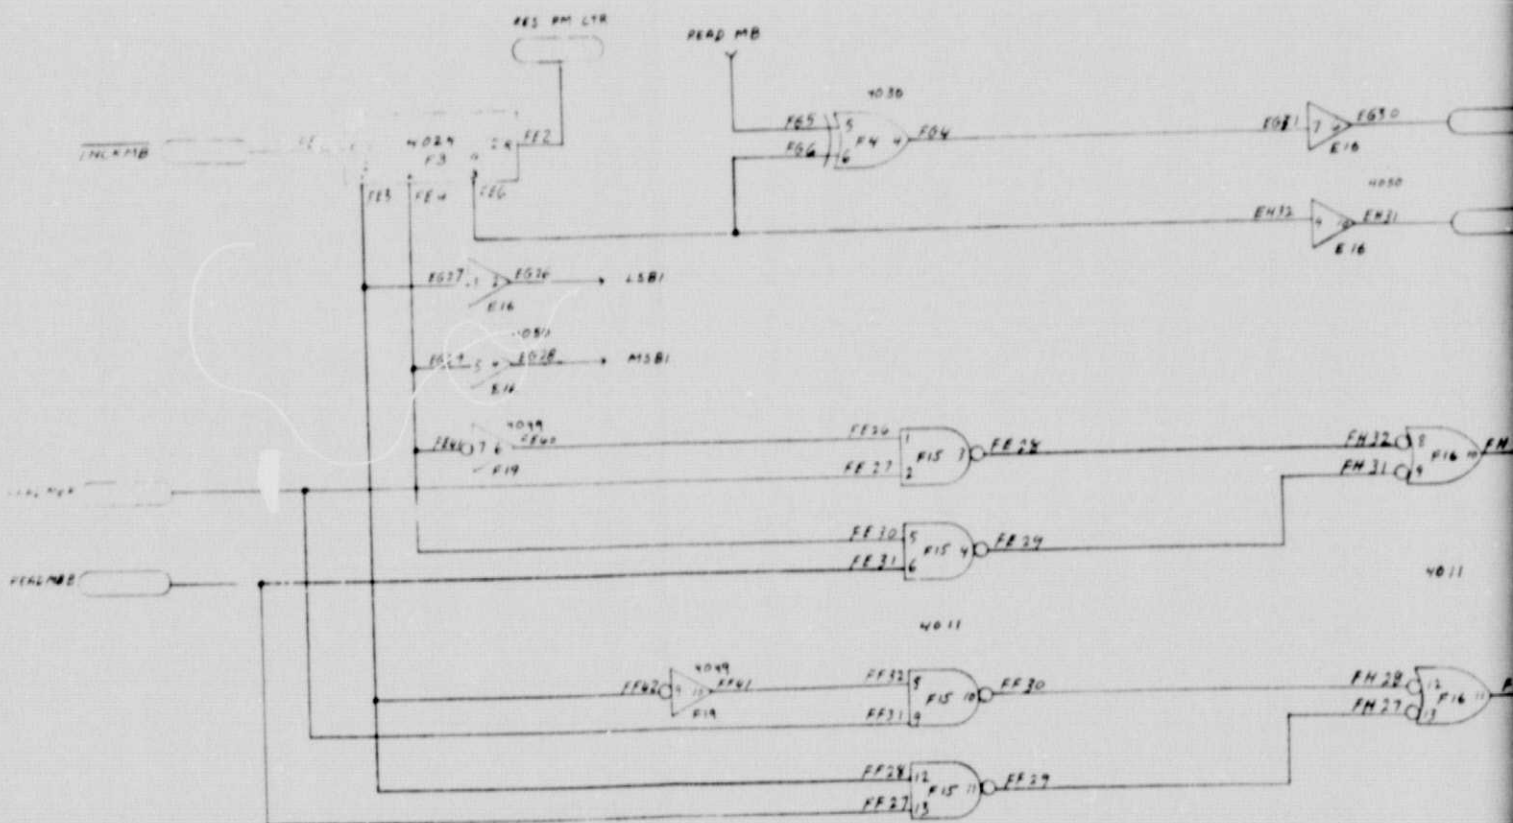 RES RM CTR
READ MB
4030
INCRMB
4024
F3
2 R
FE2
FE3
FE4
FE6
FG5
5
FG6
6
F4
4
FG4
EG31
7
6
EG30
E16
4050
EH32
9
10
EH31
E16
EG27
2
EG26
LSB1
E16
EG28
MSB1
E16
4049
7
6
FE40
F19
FE26
1
FE27
2
F15
3
FE28
FH32
8
FH31
9
F16
10
FH
FE30
5
FE31
6
F15
4
FE29
READMBB
4011
4011
4049
FF42
9
FF41
F19
FF32
8
FF31
9
F15
10
FF30
FH28
12
FH27
13
F16
11
FF28
12
FF27
13
F15
11
FF29